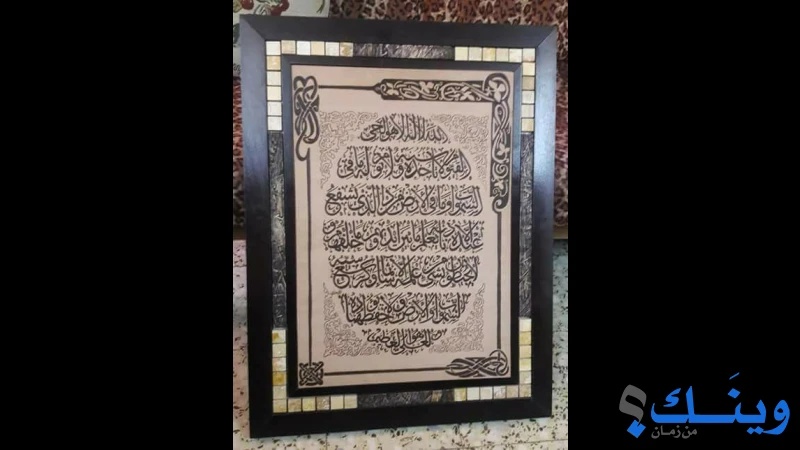 الله لا إله إلا هو الحي
القيوم لا تأخذه سنة ولا نوم له ما في
السموات وما في الأرض من ذا الذي يشفع
عنده إلا بإذنه يعلم ما بين أيديهم وما خلفهم و
لا يحيطون بشيء من علمه إلا بما شاء وسع كرسيه
السموات والأرض ولا يؤده حفظهما و
هو العلي العظيم
وينك؟
من زمان